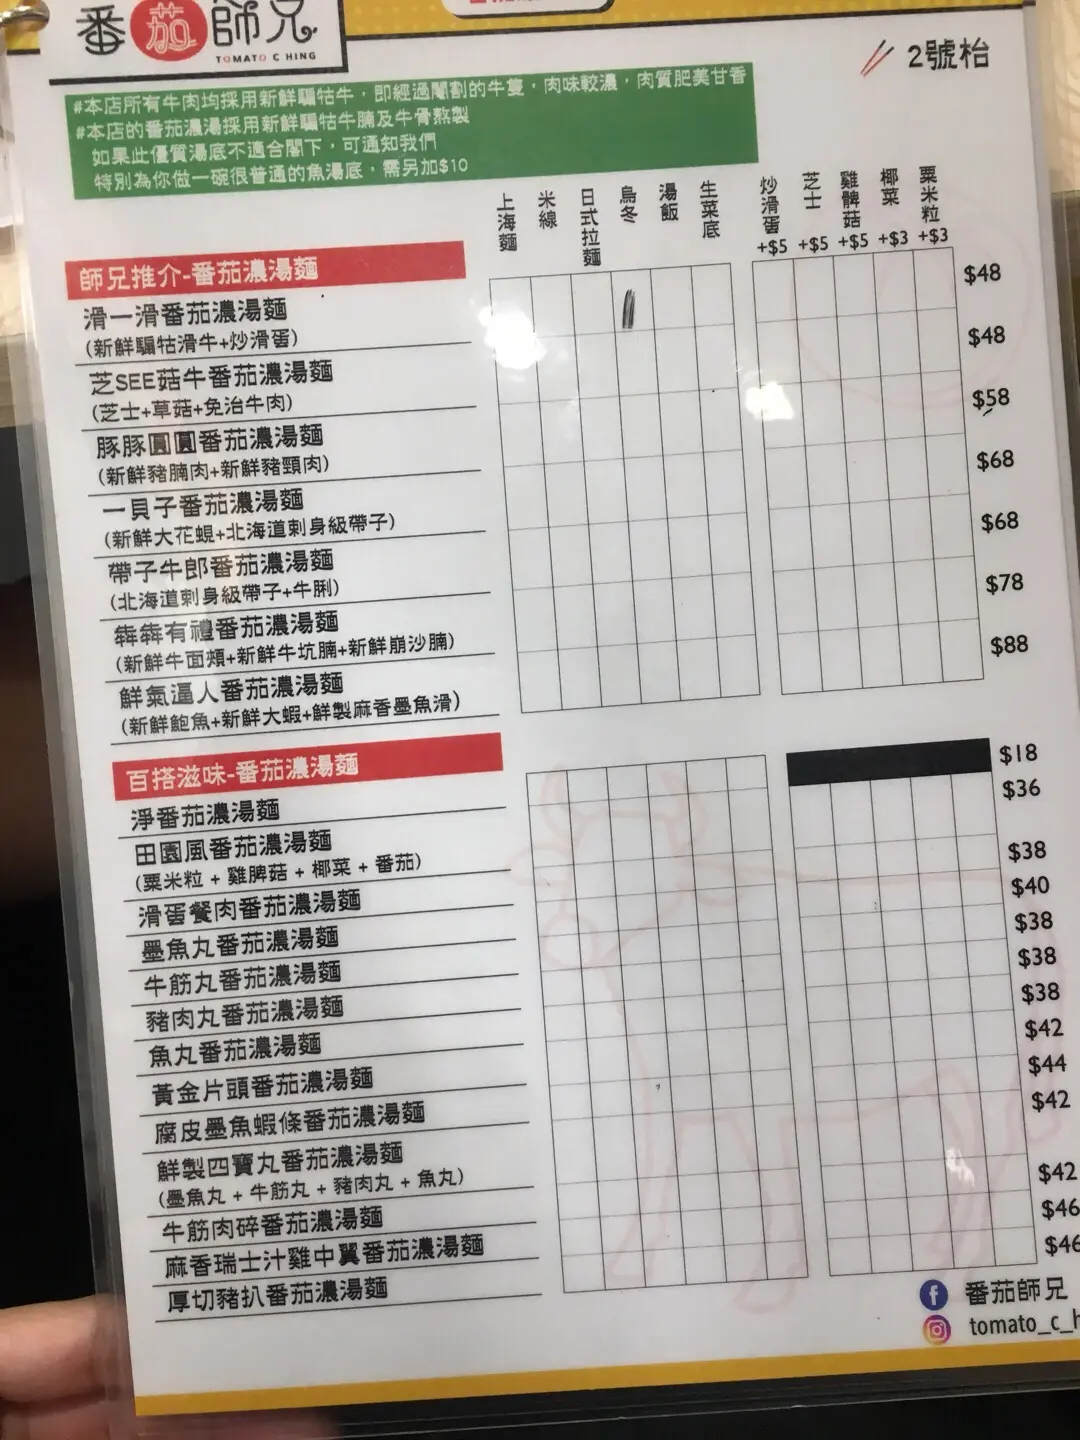 番茄師兄
TOMATO C HING
2號枱
#本店所有牛肉均採用新鮮騸牯牛，即經過閹割的牛隻，肉味較濃，肉質肥美甘香
#本店的番茄濃湯採用新鮮騸牯牛腩及牛骨熬製
如果此優質湯底不適合閣下，可通知我們
特別為你做一碗很普通的魚湯底，需另加$10
上海麵 米線 日式拉麵 烏冬 湯飯 生菜底 炒滑蛋 芝士 雞髀菇 椰菜 粟米粒
+$5 +$5 +$5 +$3 +$3
師兄推介-番茄濃湯麵
滑一滑番茄濃湯麵 $48
(新鮮騸牯滑牛+炒滑蛋)
芝SEE菇牛番茄濃湯麵 $48
(芝士+草菇+免治牛肉)
豚豚圓圓番茄濃湯麵 $58
(新鮮豬腩肉+新鮮豬頸肉)
一貝子番茄濃湯麵 $68
(新鮮大花蜆+北海道刺身級帶子)
帶子牛郎番茄濃湯麵 $68
(北海道刺身級帶子+牛脷)
犇犇有禮番茄濃湯麵 $78
(新鮮牛面頰+新鮮牛坑腩+新鮮崩沙腩)
鮮氣逼人番茄濃湯麵 $88
(新鮮鮑魚+新鮮大蝦+鮮製麻香墨魚滑)
百搭滋味-番茄濃湯麵
淨番茄濃湯麵 $18
田園風番茄濃湯麵 $36
(粟米粒 + 雞脾菇 + 椰菜 + 番茄)
滑蛋餐肉番茄濃湯麵 $38
墨魚丸番茄濃湯麵 $40
牛筋丸番茄濃湯麵 $38
豬肉丸番茄濃湯麵 $38
魚丸番茄濃湯麵 $38
黃金片頭番茄濃湯麵 $42
腐皮墨魚蝦條番茄濃湯麵 $44
鮮製四寶丸番茄濃湯麵 $42
(墨魚丸 + 牛筋丸 + 豬肉丸 + 魚丸)
牛筋肉碎番茄濃湯麵 $42
麻香瑞士汁雞中翼番茄濃湯麵 $46
厚切豬扒番茄濃湯麵 $46
番茄師兄
tomato_c_h